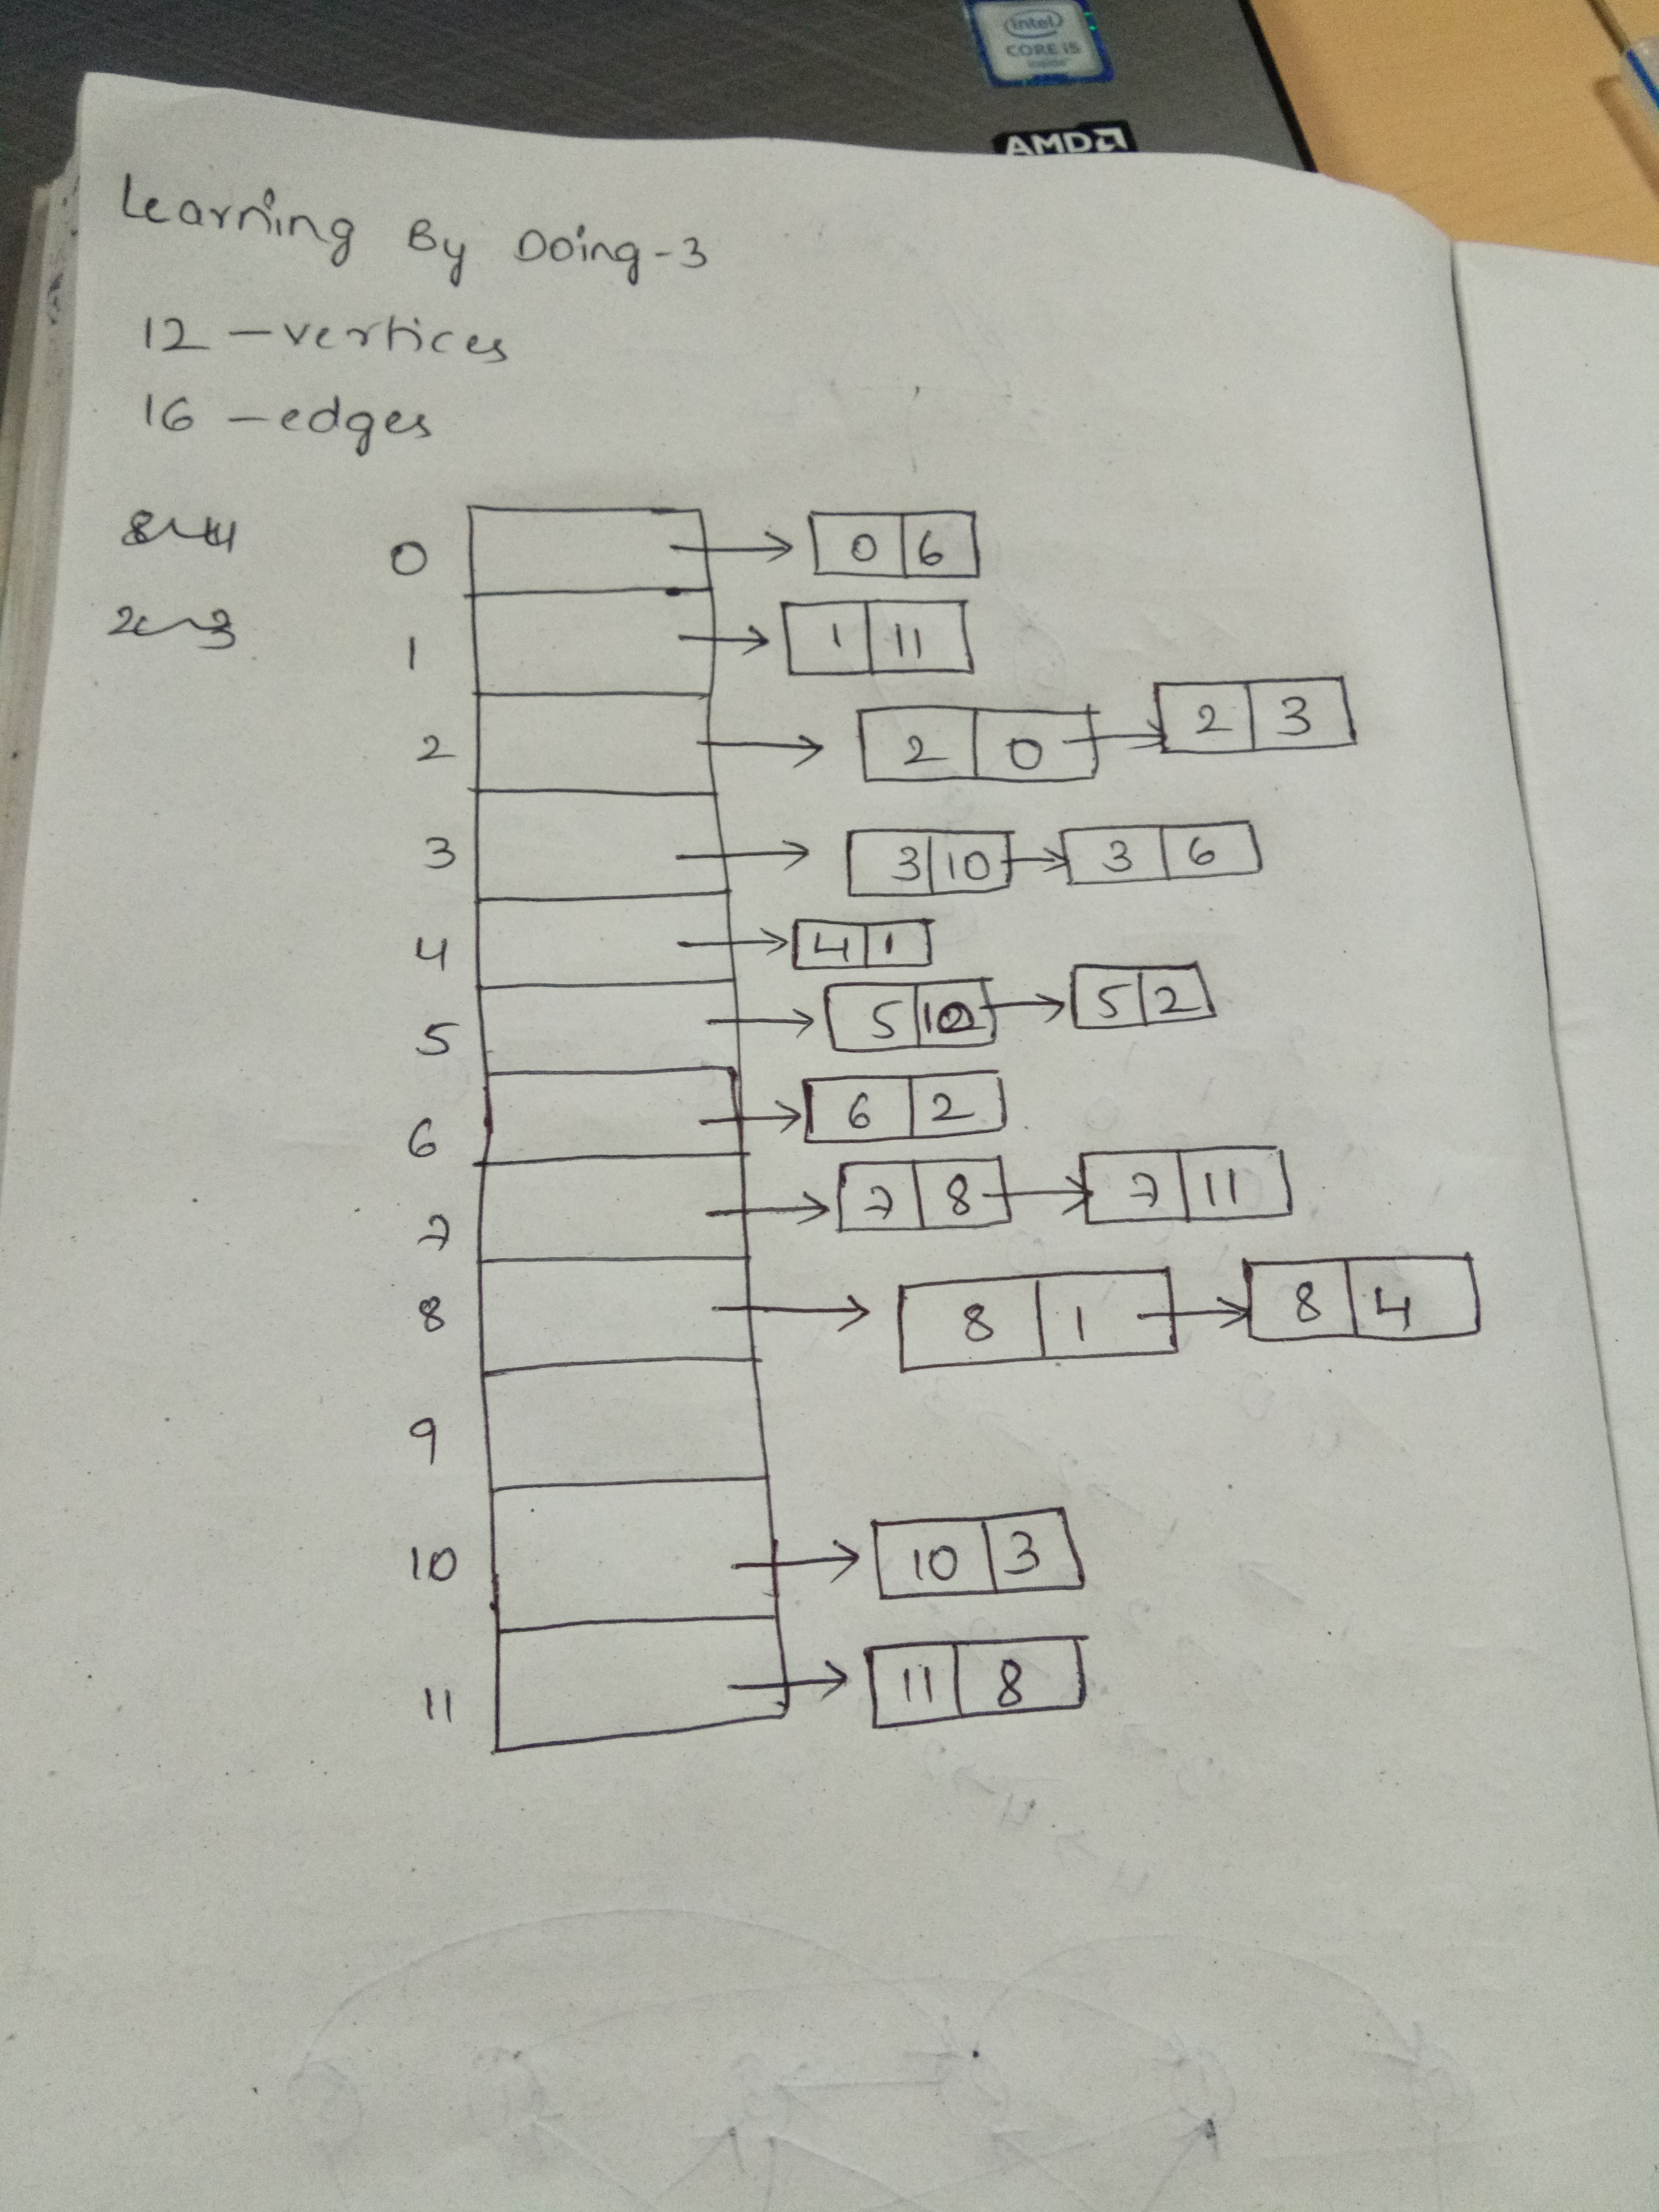 intel
CORE i5
inside
AMD
Learning By Doing-3
12 - vertices
16 - edges
0 0 6
1 1 11
2 2 0 2 3
3 3 10 3 6
4 4 1
5 5 10 5 2
6 6 2
7 7 8 7 11
8 8 1 8 4
9
10 10 3
11 11 8